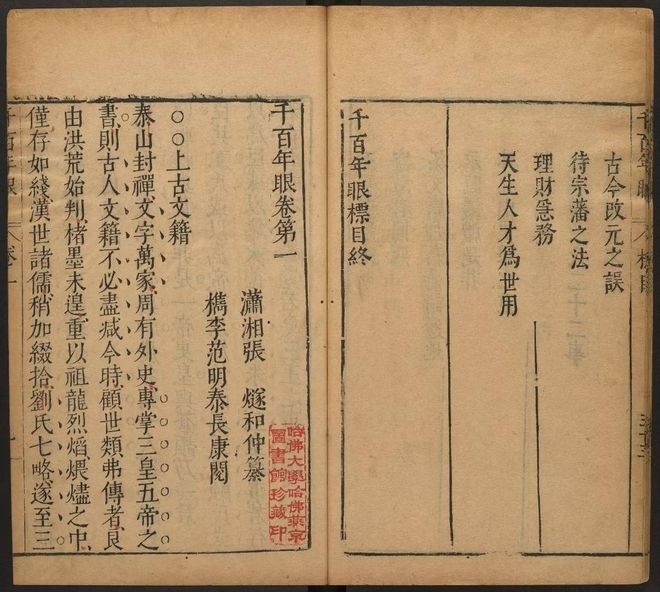 千百年眼
標目
古今改元之誤
待宗藩之法
理財急務
天生人才爲世用
千百年眼標目終
千百年眼卷第一
瀟湘張 燧和仲纂
檇李范明泰長康閱
哈佛大學哈佛燕京
圖書館珍藏印
○○上古文籍
泰山封禪文字萬家周有外史專掌三皇五帝之
書則古人文籍不必盡減今時顧世類弗傳者良
由洪荒始判楮墨未遑重以祖龍烈熖煨燼之中
僅存如綫漢世諸儒稍加綴拾劉氏七略遂至三
千百年眼
卷一